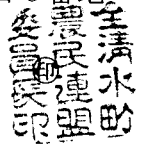 清水町
農民連盟
委員長印
印